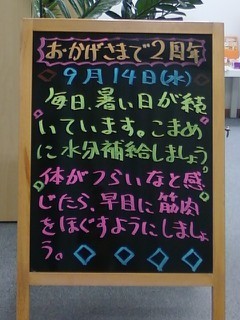 おかげさまで2周年
9月14日(水)
毎日、暑い日が続
いています。こまめ
に水分補給しましょう。
体がつらいなと感
じたら、早目に筋肉
をほぐすようにしましょ
う。